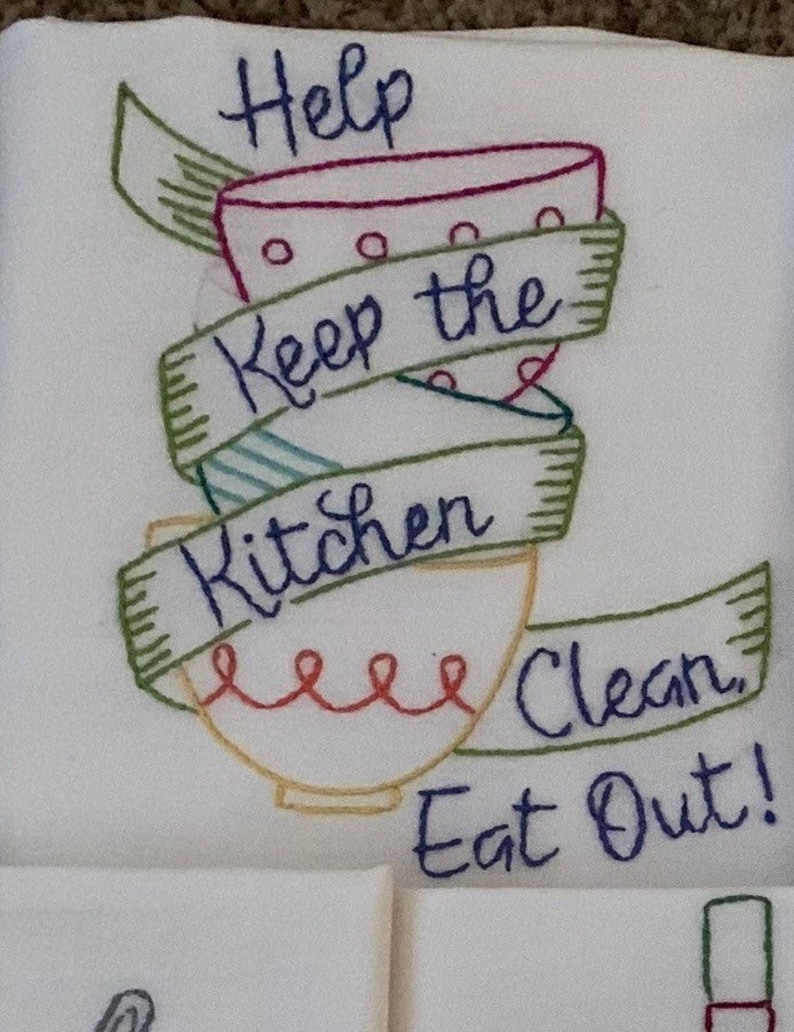 Help
Keep the
Kitchen
Clean.
Eat Out!